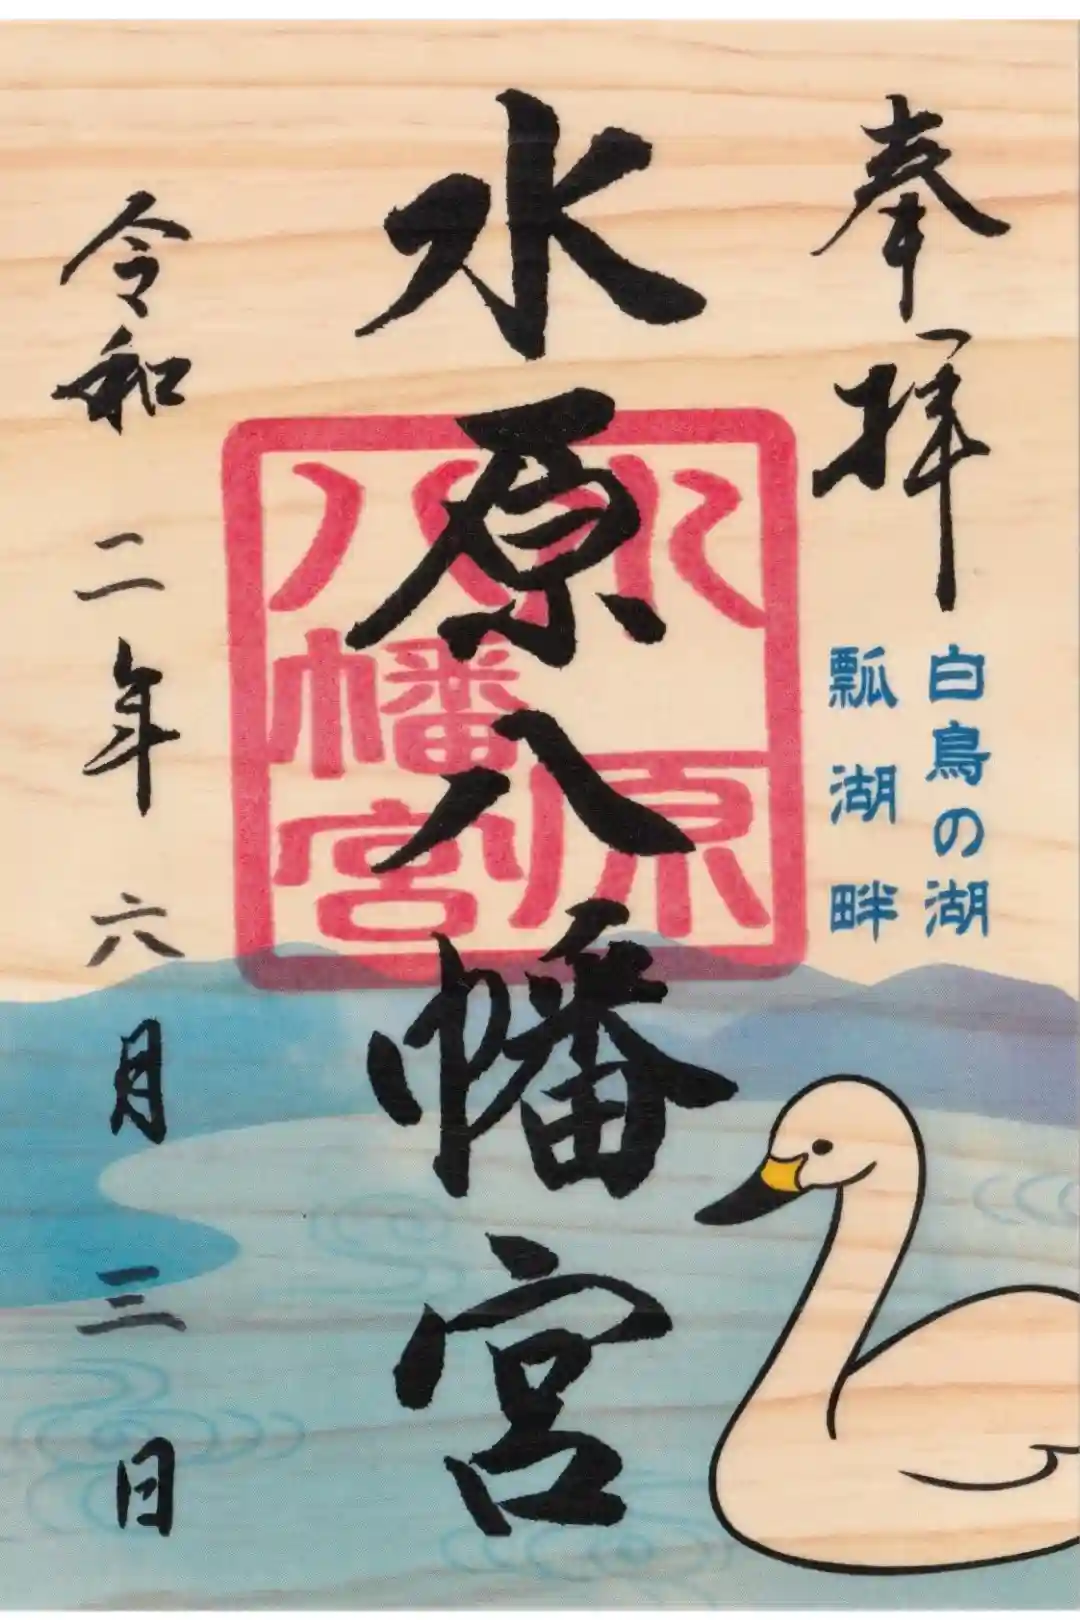 奉拝
白鳥の湖
瓢湖畔
水原八幡宮
水原
八幡宮
令和二年六月三日